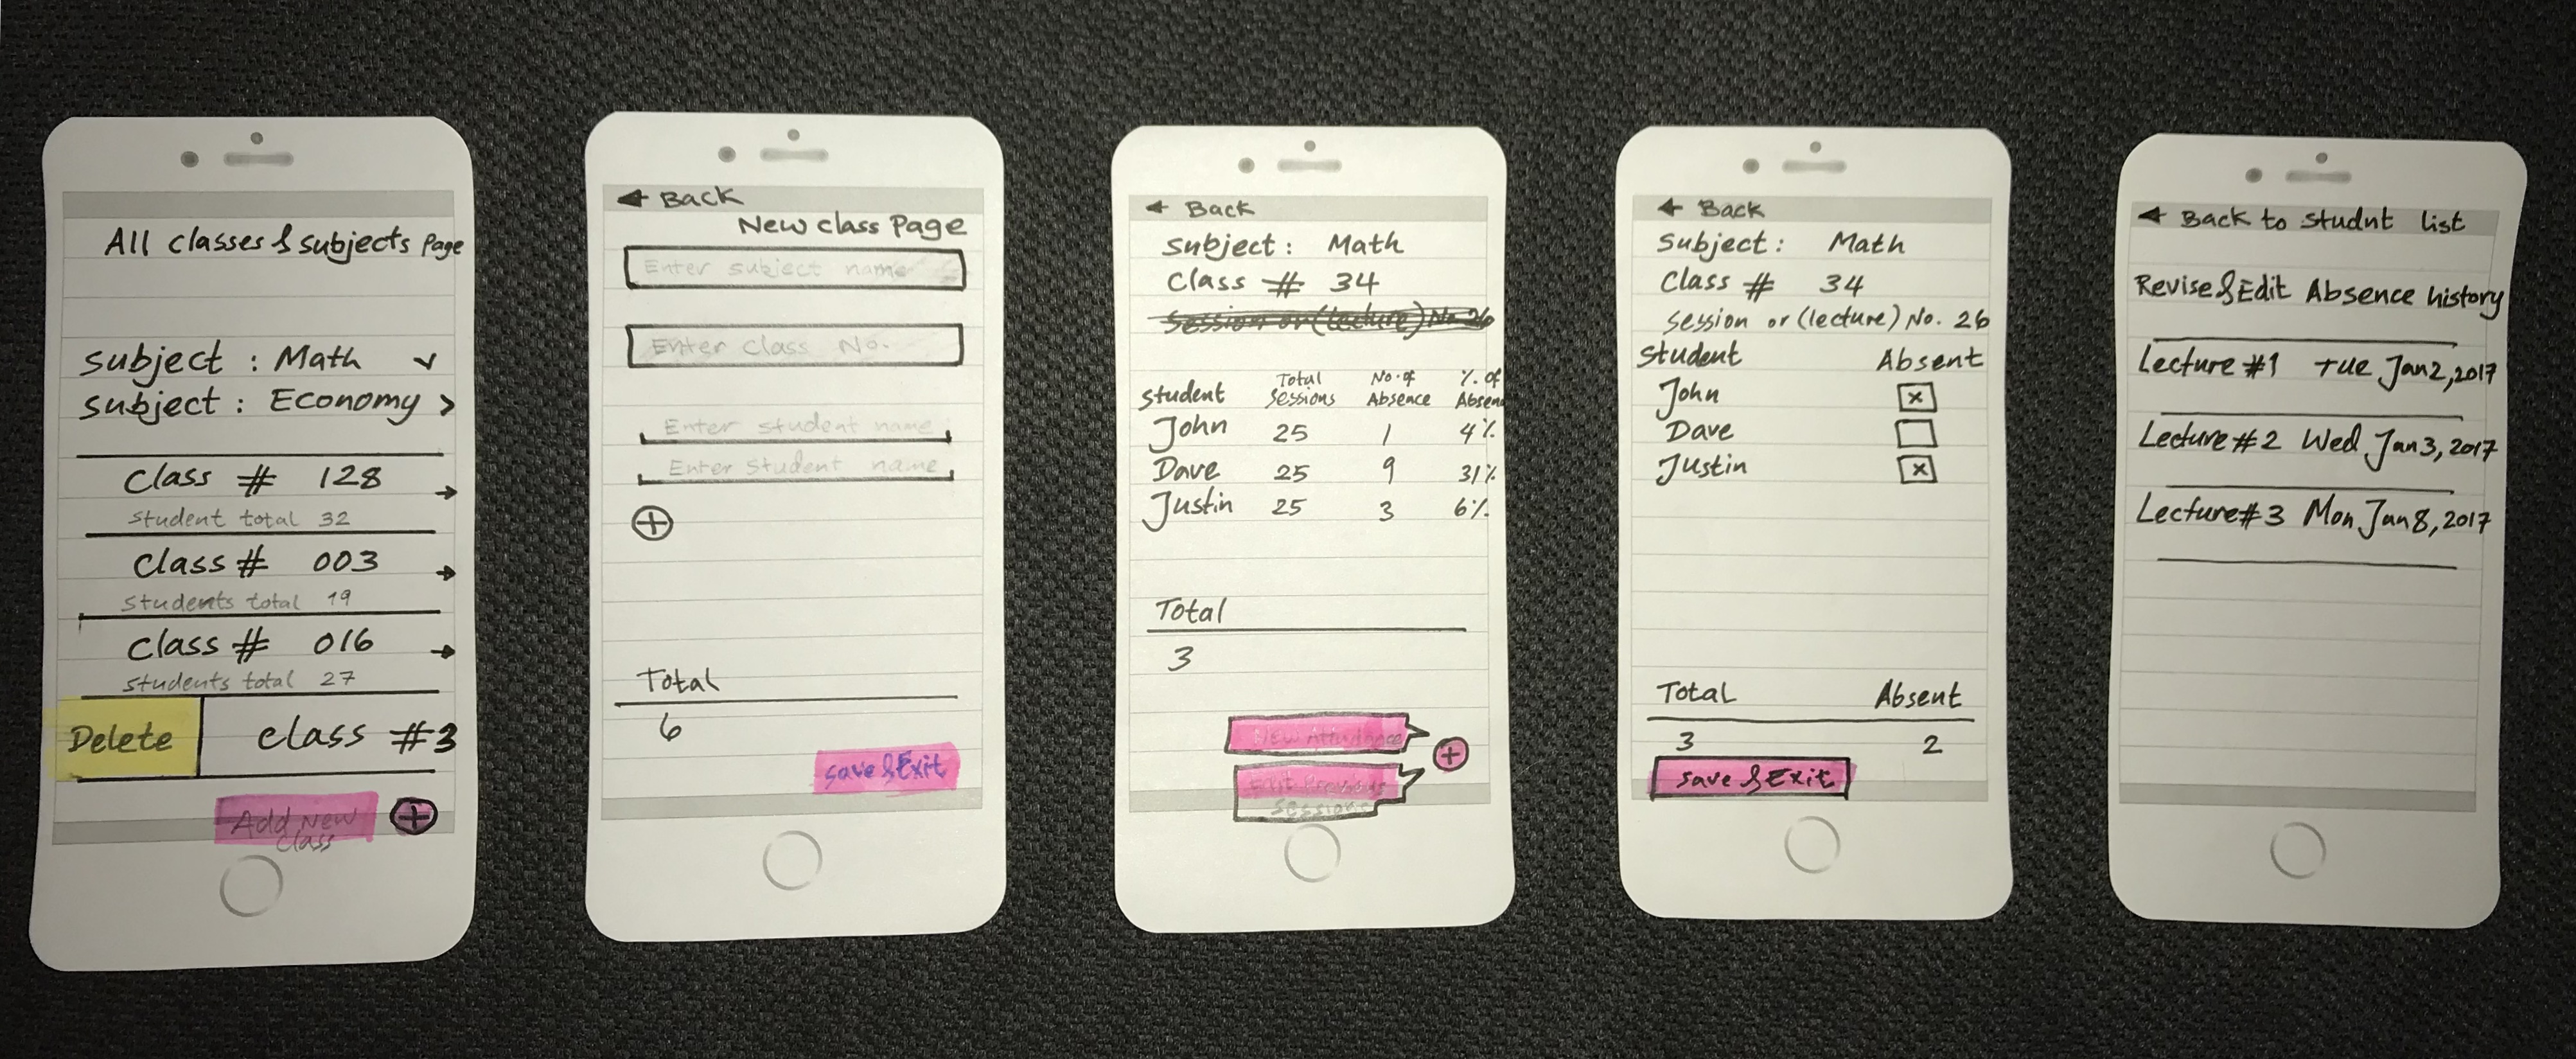 All classes & subjects Page
subject : Math
subject : Economy >
Class # 128
student total 32
Class # 003
students total 19
Class # 016
students total 27
Delete class #3
Add New
Class
Back
New class Page
Enter subject name
Enter Class No.
Enter student name
Enter Student name
Total
6
save & Exit
Back
subject : Math
Class # 34
Session or (lecture) No. 26
Student Total Sessions No. of Absence %. of Absenc
John 25 1 4%
Dave 25 9 31%
Justin 25 3 6%
Total
3
New Attendance
Edit Previous
Sessions
Back
Subject : Math
Class # 34
session or (lecture) No. 26
Student Absent
John x
Dave
Justin x
Total Absent
3 2
save & Exit
Back to Studnt list
Revise & Edit Absence history
Lecture #1 Tue Jan 2, 2017
Lecture #2 Wed Jan 3, 2017
Lecture #3 Mon Jan 8, 2017